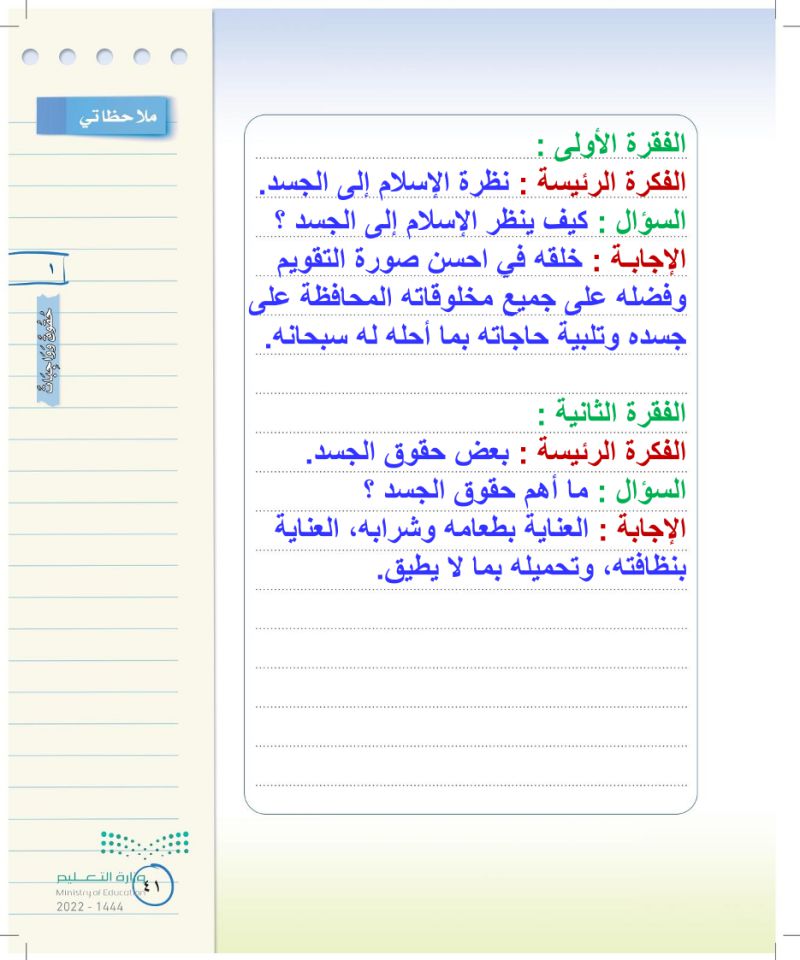 ملاحظاتي
١
حُقُوقٌ وَوَاجِبَاتٌ
الفقرة الأولى :
الفكرة الرئيسة : نظرة الإسلام إلى الجسد.
السؤال : كيف ينظر الإسلام إلى الجسد ؟
الإجابـة : خلقه في احسن صورة التقويم
وفضله على جميع مخلوقاته المحافظة على
جسده وتلبية حاجاته بما أحله له سبحانه.
الفقرة الثانية :
الفكرة الرئيسة : بعض حقوق الجسد.
السؤال : ما أهم حقوق الجسد ؟
الإجابة : العناية بطعامه وشرابه، العناية
بنظافته، وتحميله بما لا يطيق.
وزارة التـعـلـيم
Ministry of Education
2022 - 1444
٤١